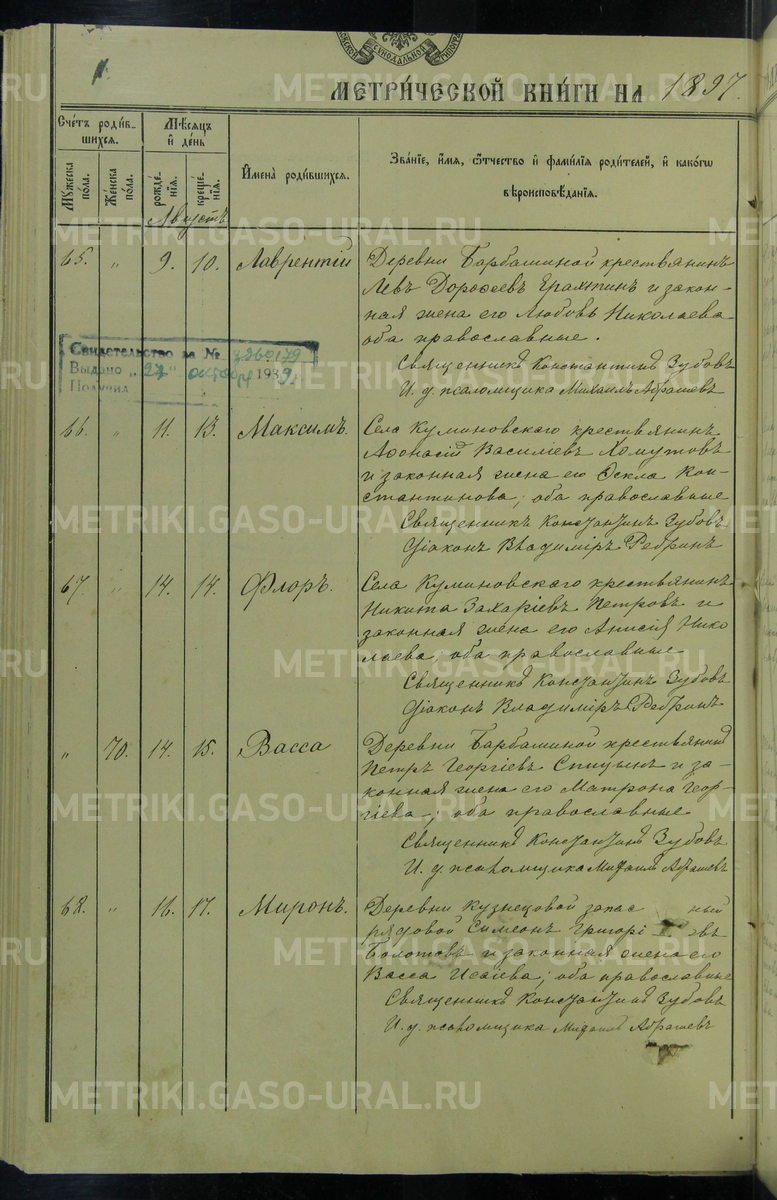 МЕТРИ́ЧЕСКОЙ КНИ́ГИ НА 1897.
Счетъ роди́вшихся.
Мꙋ́жеска по́ла.
Же́нска по́ла.
Мѣ́сяцъ и҆ де́нь
рожде́нїѧ.
креще́нїѧ.
И҆мена̀ роди́вшихся.
Зва́нїе, и҆́мѧ, ѻ҆́тчество и҆ фами́лїѧ роди́телей, и҆ како́гѡ
вѣроисповѣ́данїѧ.
Августъ
65. " 9. 10. Лаврентій
Деревни Барбашиной крестьянинъ
Левъ Дороѳеевъ и закон-
ная жена его Любовь Николаева
оба православные.
Священникъ Константинъ Зубовъ
И. д. псаломщика Михаилъ Абрашевъ
Свидетельство за №
Выдано „27" октября 1939
Получил
66. " 11. 13. Максимъ.
Села Куминовскаго крестьянинъ
Аѳонасій Василіевъ Хомутовъ
и законная жена его Ѳекла Кон-
стантинова; оба православные
Священникъ Константинъ Зубовъ
Діаконъ Владиміръ Ребринъ
67. " 14. 14. Флоръ.
Села Куминовскаго крестьянинъ
Никита Захаріевъ Петровъ и
законная жена его Анисія Нико
лаева; оба православные
Священникъ Константинъ Зубовъ
Діаконъ Владиміръ Ребринъ
" 70. 14. 15. Васса
Деревни Барбашиной крестьянинъ
Петръ Георгіевъ Спицынъ и за-
конная жена его Матрона Геор-
гіева; оба православные
Священникъ Константинъ Зубовъ
И. д. псаломщика Михаилъ Абрашевъ
68. " 16. 17. Миронъ.
Деревни Кузнецовой запас ный
рядовой Симеонъ Григорі евъ
Болотовъ и законная жена его
Васса Исаіева; оба православные
Священникъ Константинъ Зубовъ
И. д. псаломщика Михаилъ Абрашевъ
METRIKI.GASO-URAL.RU